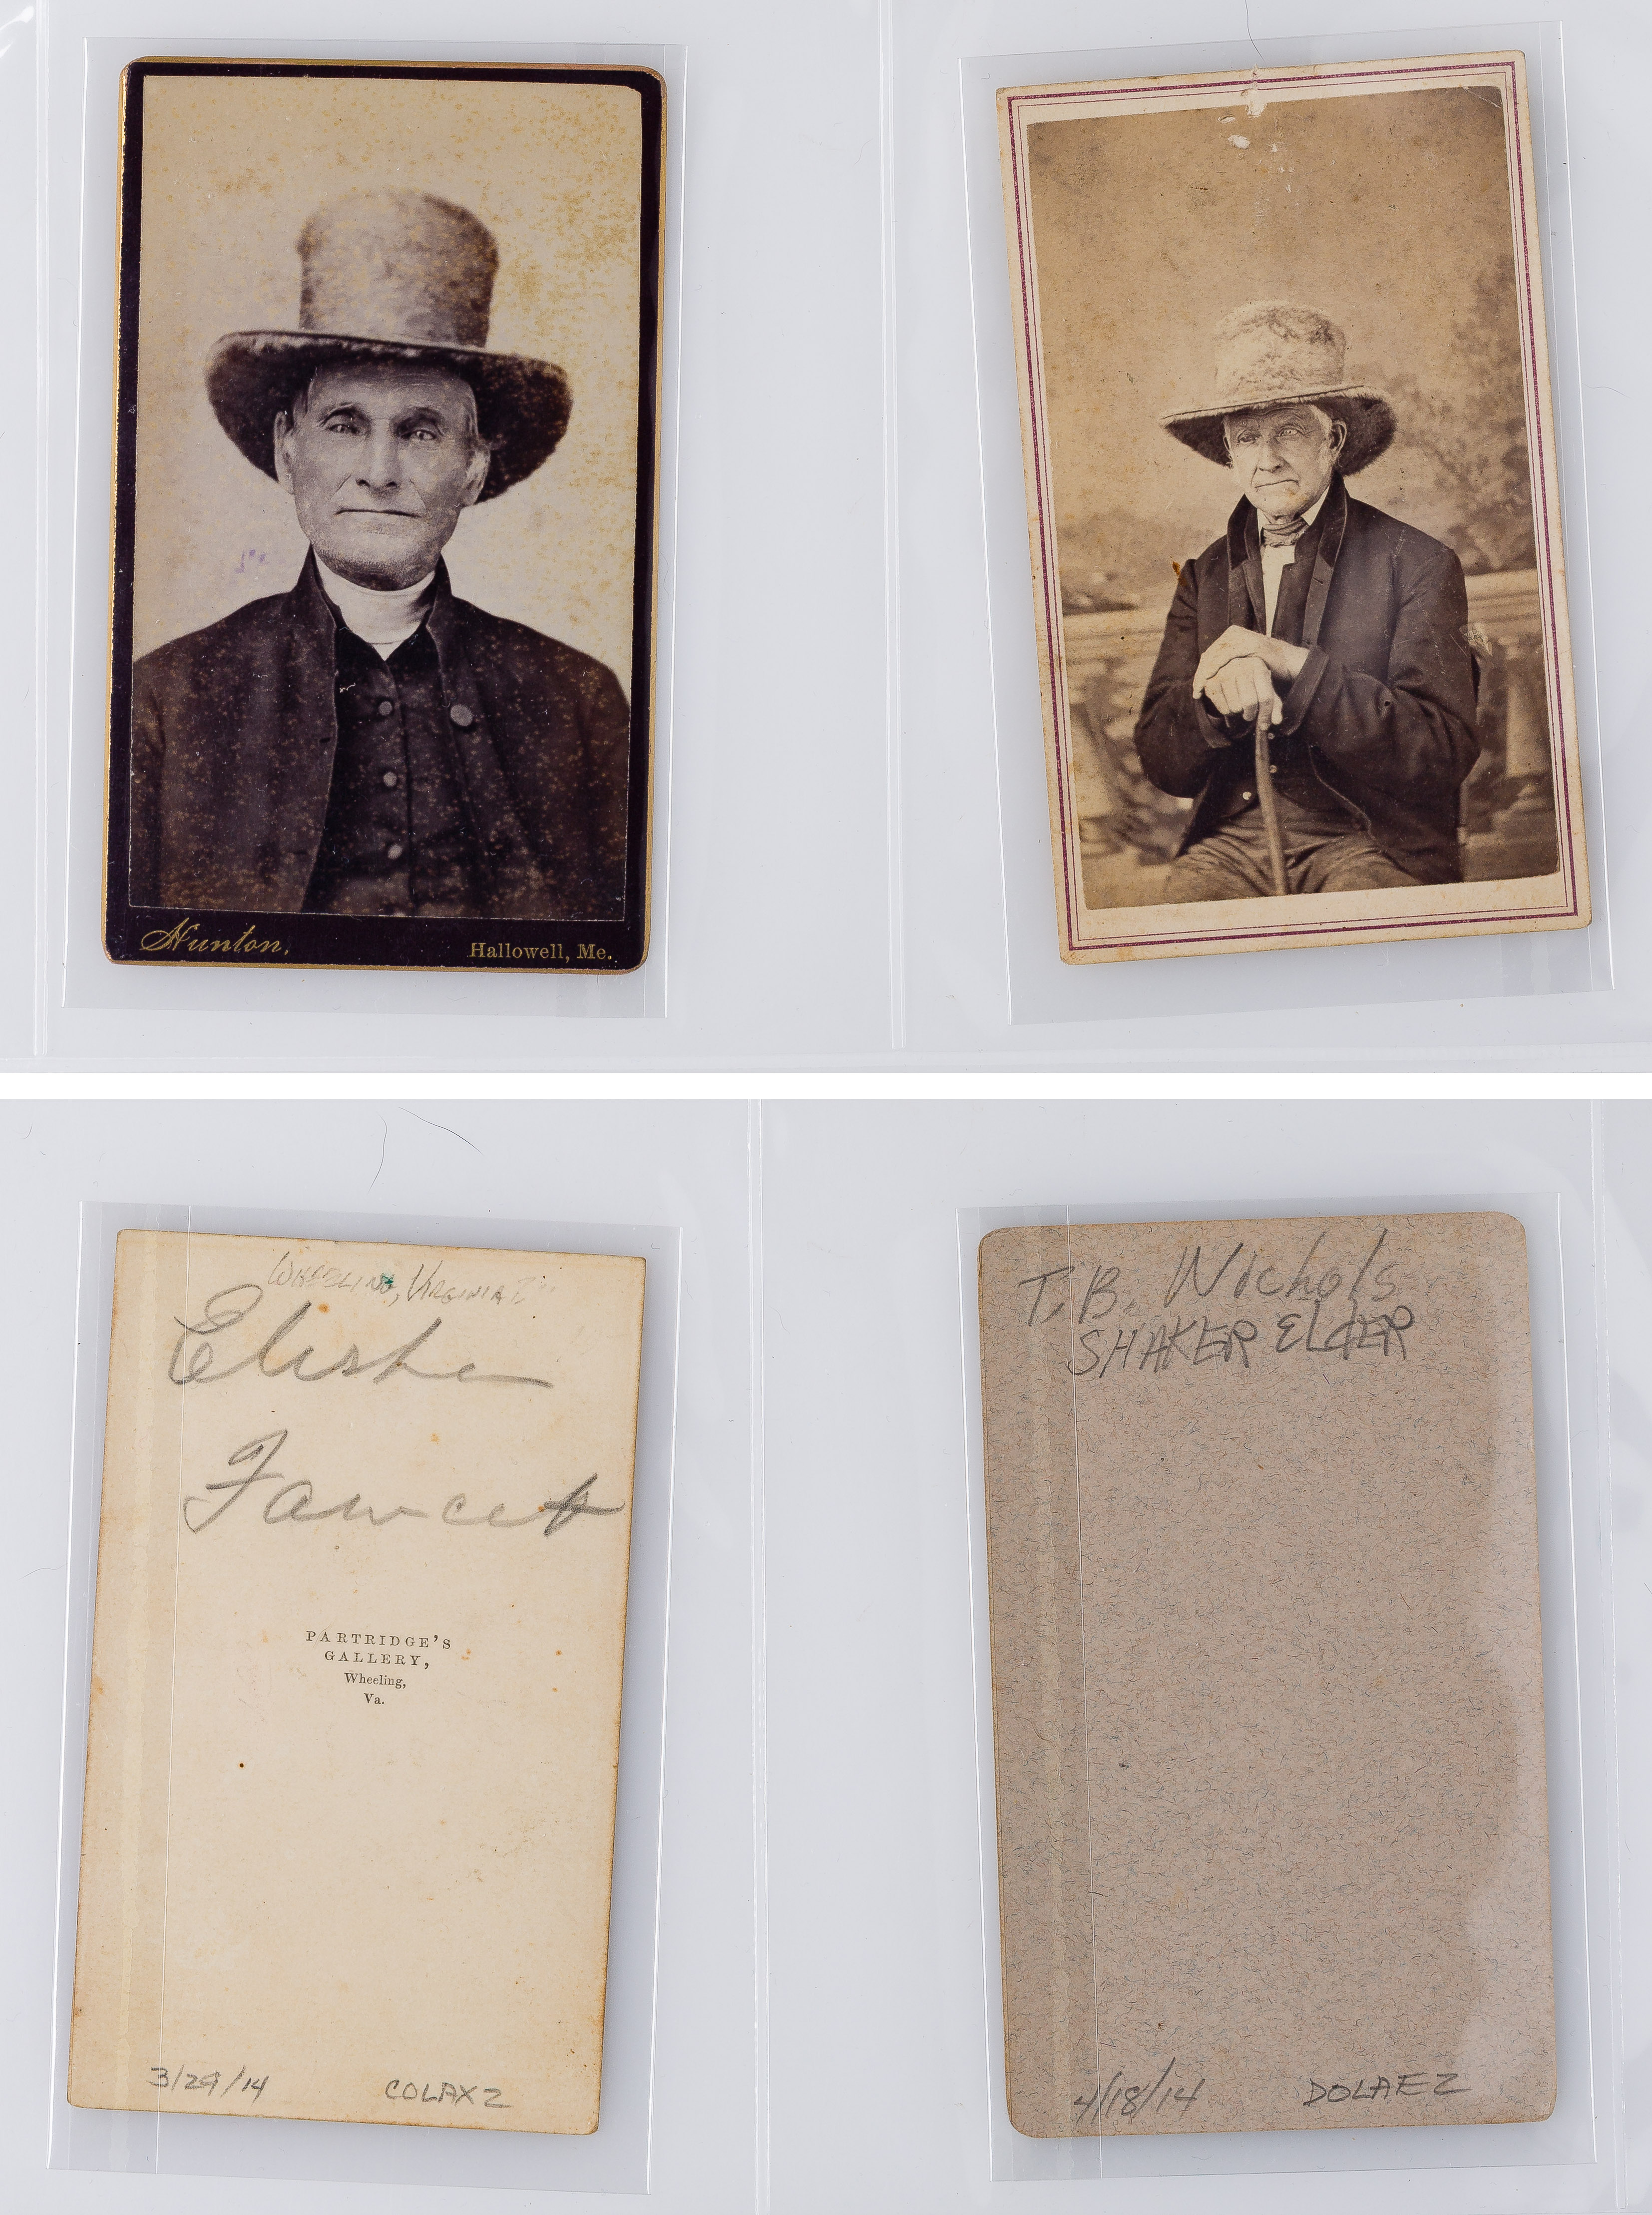 Hunton.
Hallowell, Me.
Wheeling, Virginia
Elisha
Fawcet
PARTRIDGE'S
GALLERY,
Wheeling,
Va.
3/29/14
COLAXZ
T. B. Nichols
SHAKER ELDER
4/18/14
DOLAEZ